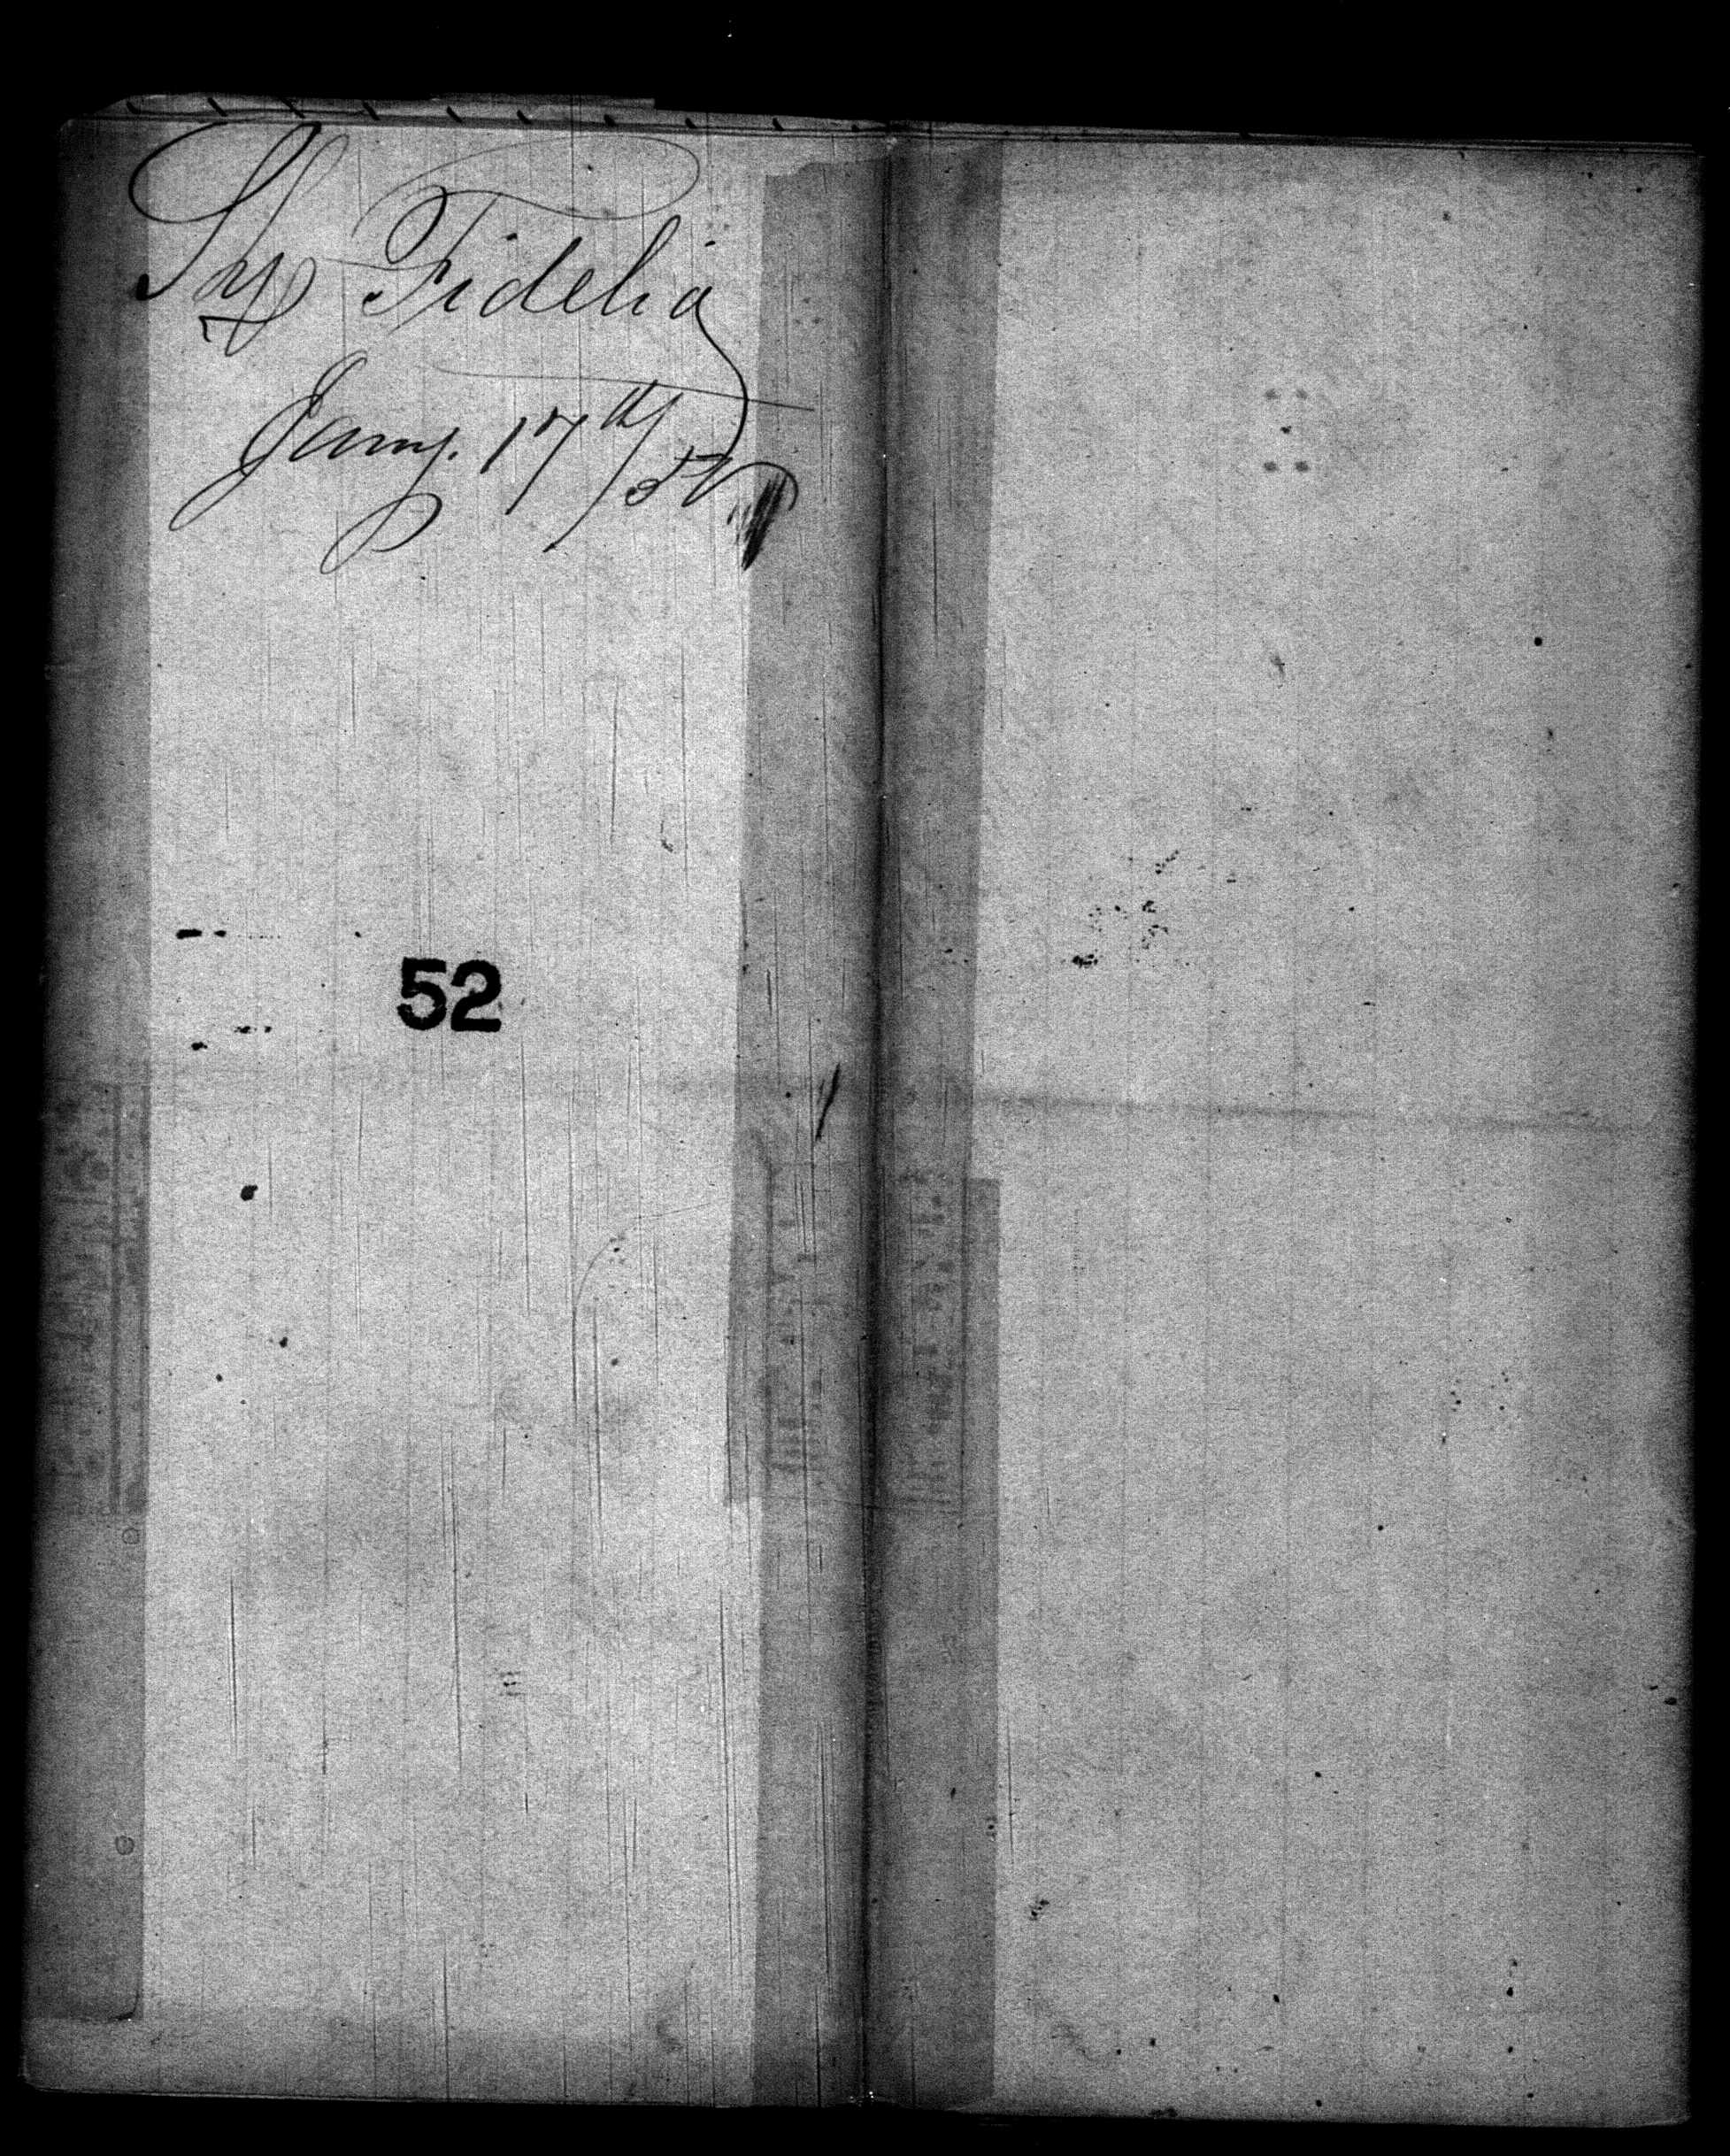 Shp Fidelia
Jany. 17th/50
52